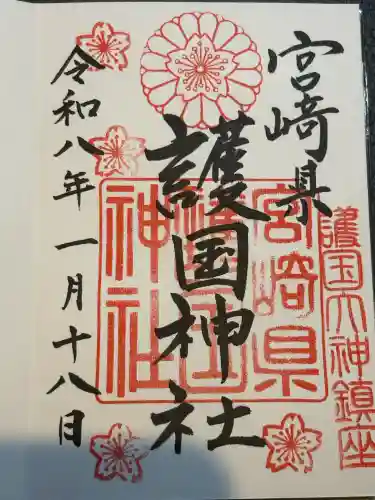 宮﨑県
護国大神鎮座
護国神社
宮崎県護国神社
令和八年一月十八日